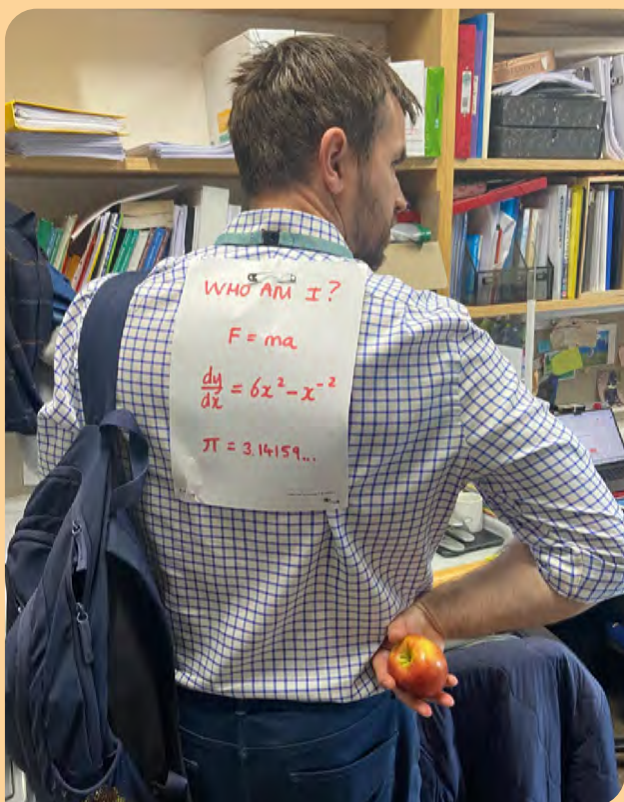 WHO AM I?
F = ma
dy/dx = 6x² - x⁻²
π = 3.14159...